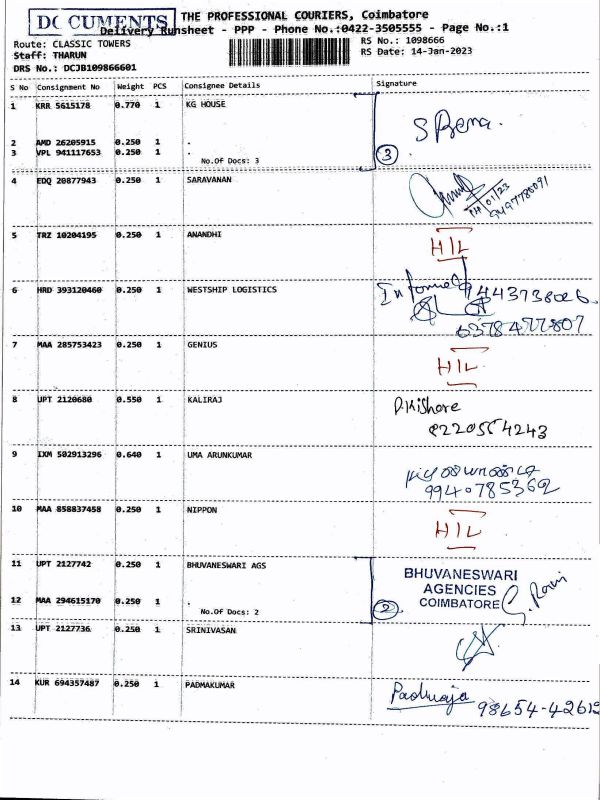 DOCUMENTS
THE PROFESSIONAL COURIERS, Coimbatore
Delivery Runsheet - PPP - Phone No.:0422-3505555 - Page No.:1
Route: CLASSIC TOWERS RS No.: 1098666
Staff: THARUN RS Date: 14-Jan-2023
DRS No.: DCJB109866601
S No Consignment No Weight PCS Consignee Details Signature
1 KRR 5615178 0.770 1 KG HOUSE
2 AMD 26205915 0.250 1 .
3 VPL 941117653 0.250 1 .
No.Of Docs: 3 3
4 EDQ 20877943 0.250 1 SARAVANAN
14/01/23
5 TRZ 10204195 0.250 1 ANANDHI HIL
6 HRD 393120460 0.250 1 WESTSHIP LOGISTICS Informed 9443738026
6378477807
7 MAA 285753423 0.250 1 GENIUS HIL
8 UPT 2120680 0.550 1 KALIRAJ D.Kishore
8220554243
9 IXM 502913296 0.640 1 UMA ARUNKUMAR
9940785362
10 MAA 858837458 0.250 1 NIPPON HIL
11 UPT 2127742 0.250 1 BHUVANESWARI AGS BHUVANESWARI
AGENCIES
12 MAA 294615170 0.250 1 . COIMBATORE G. Ravi
No.Of Docs: 2 2
13 UPT 2127736 0.250 1 SRINIVASAN
14 KUR 694357487 0.250 1 PADMAKUMAR Padmaja 98654-42612